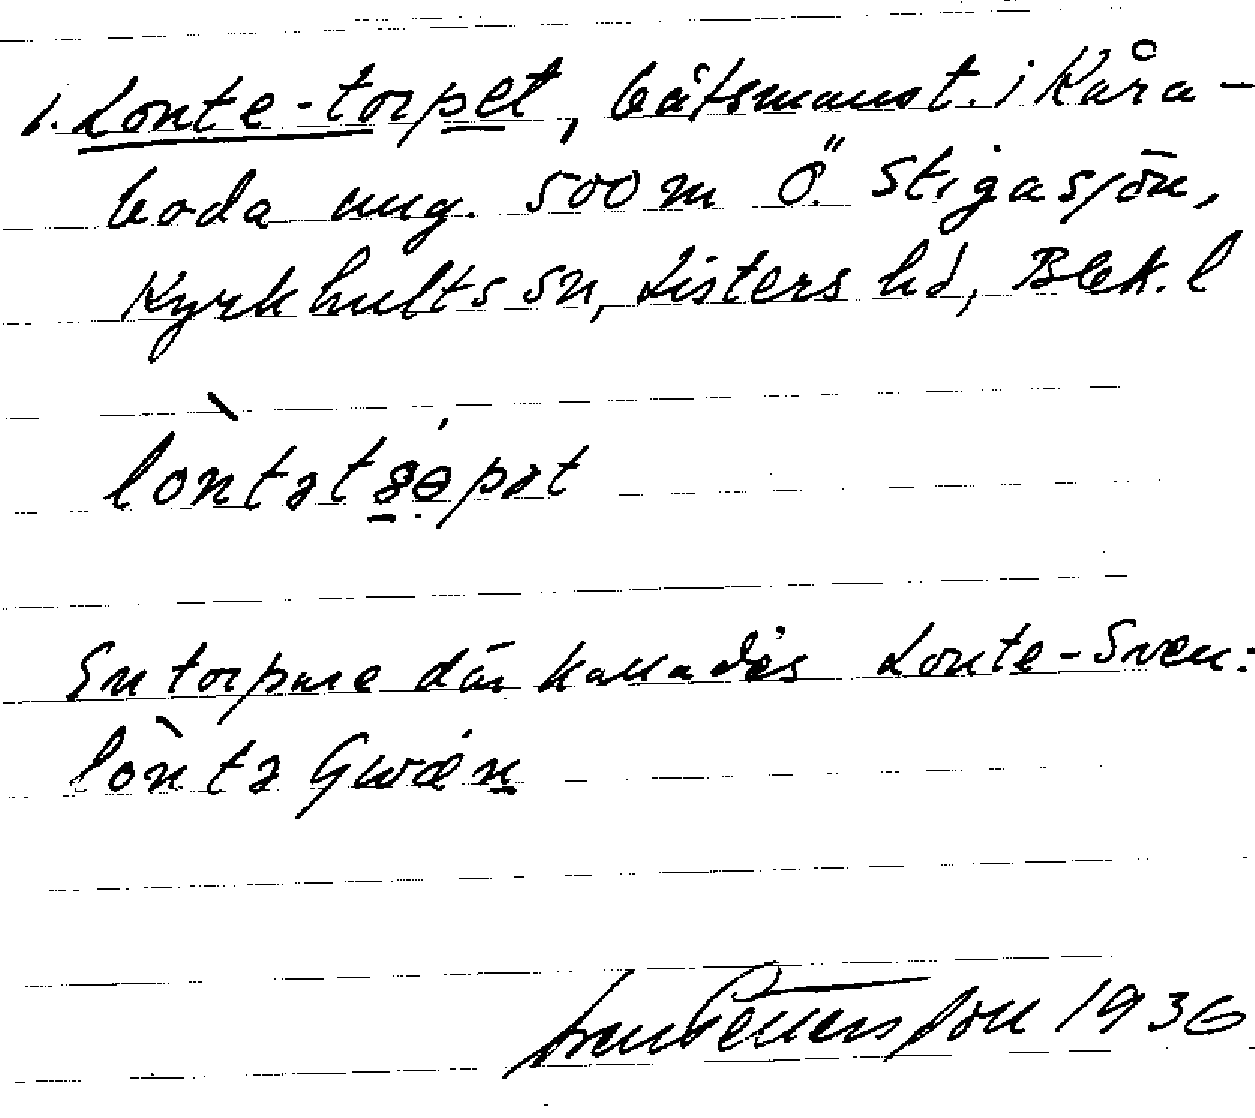 1. Lonte-torpet, båtsmanst. i Kåra-
boda ung. 500 m Ö. Stigasjön,
Kyrkhults sn, Listers hd, Blek. l
En torpare där kallades Lonte-Sven:
Pettersson 1936